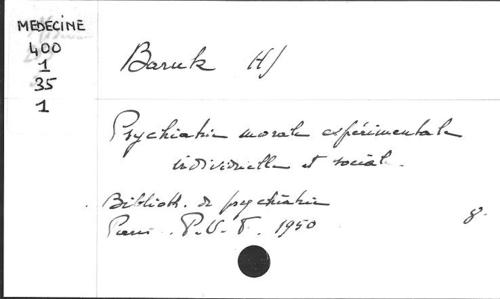 MEDECINE
400
1
35
1
Baruk H/
Psychiatrie morale expérimentale
individuelle et sociale.
Biblioth. de psychiatrie
Paris. P.U.F. 1950
8°